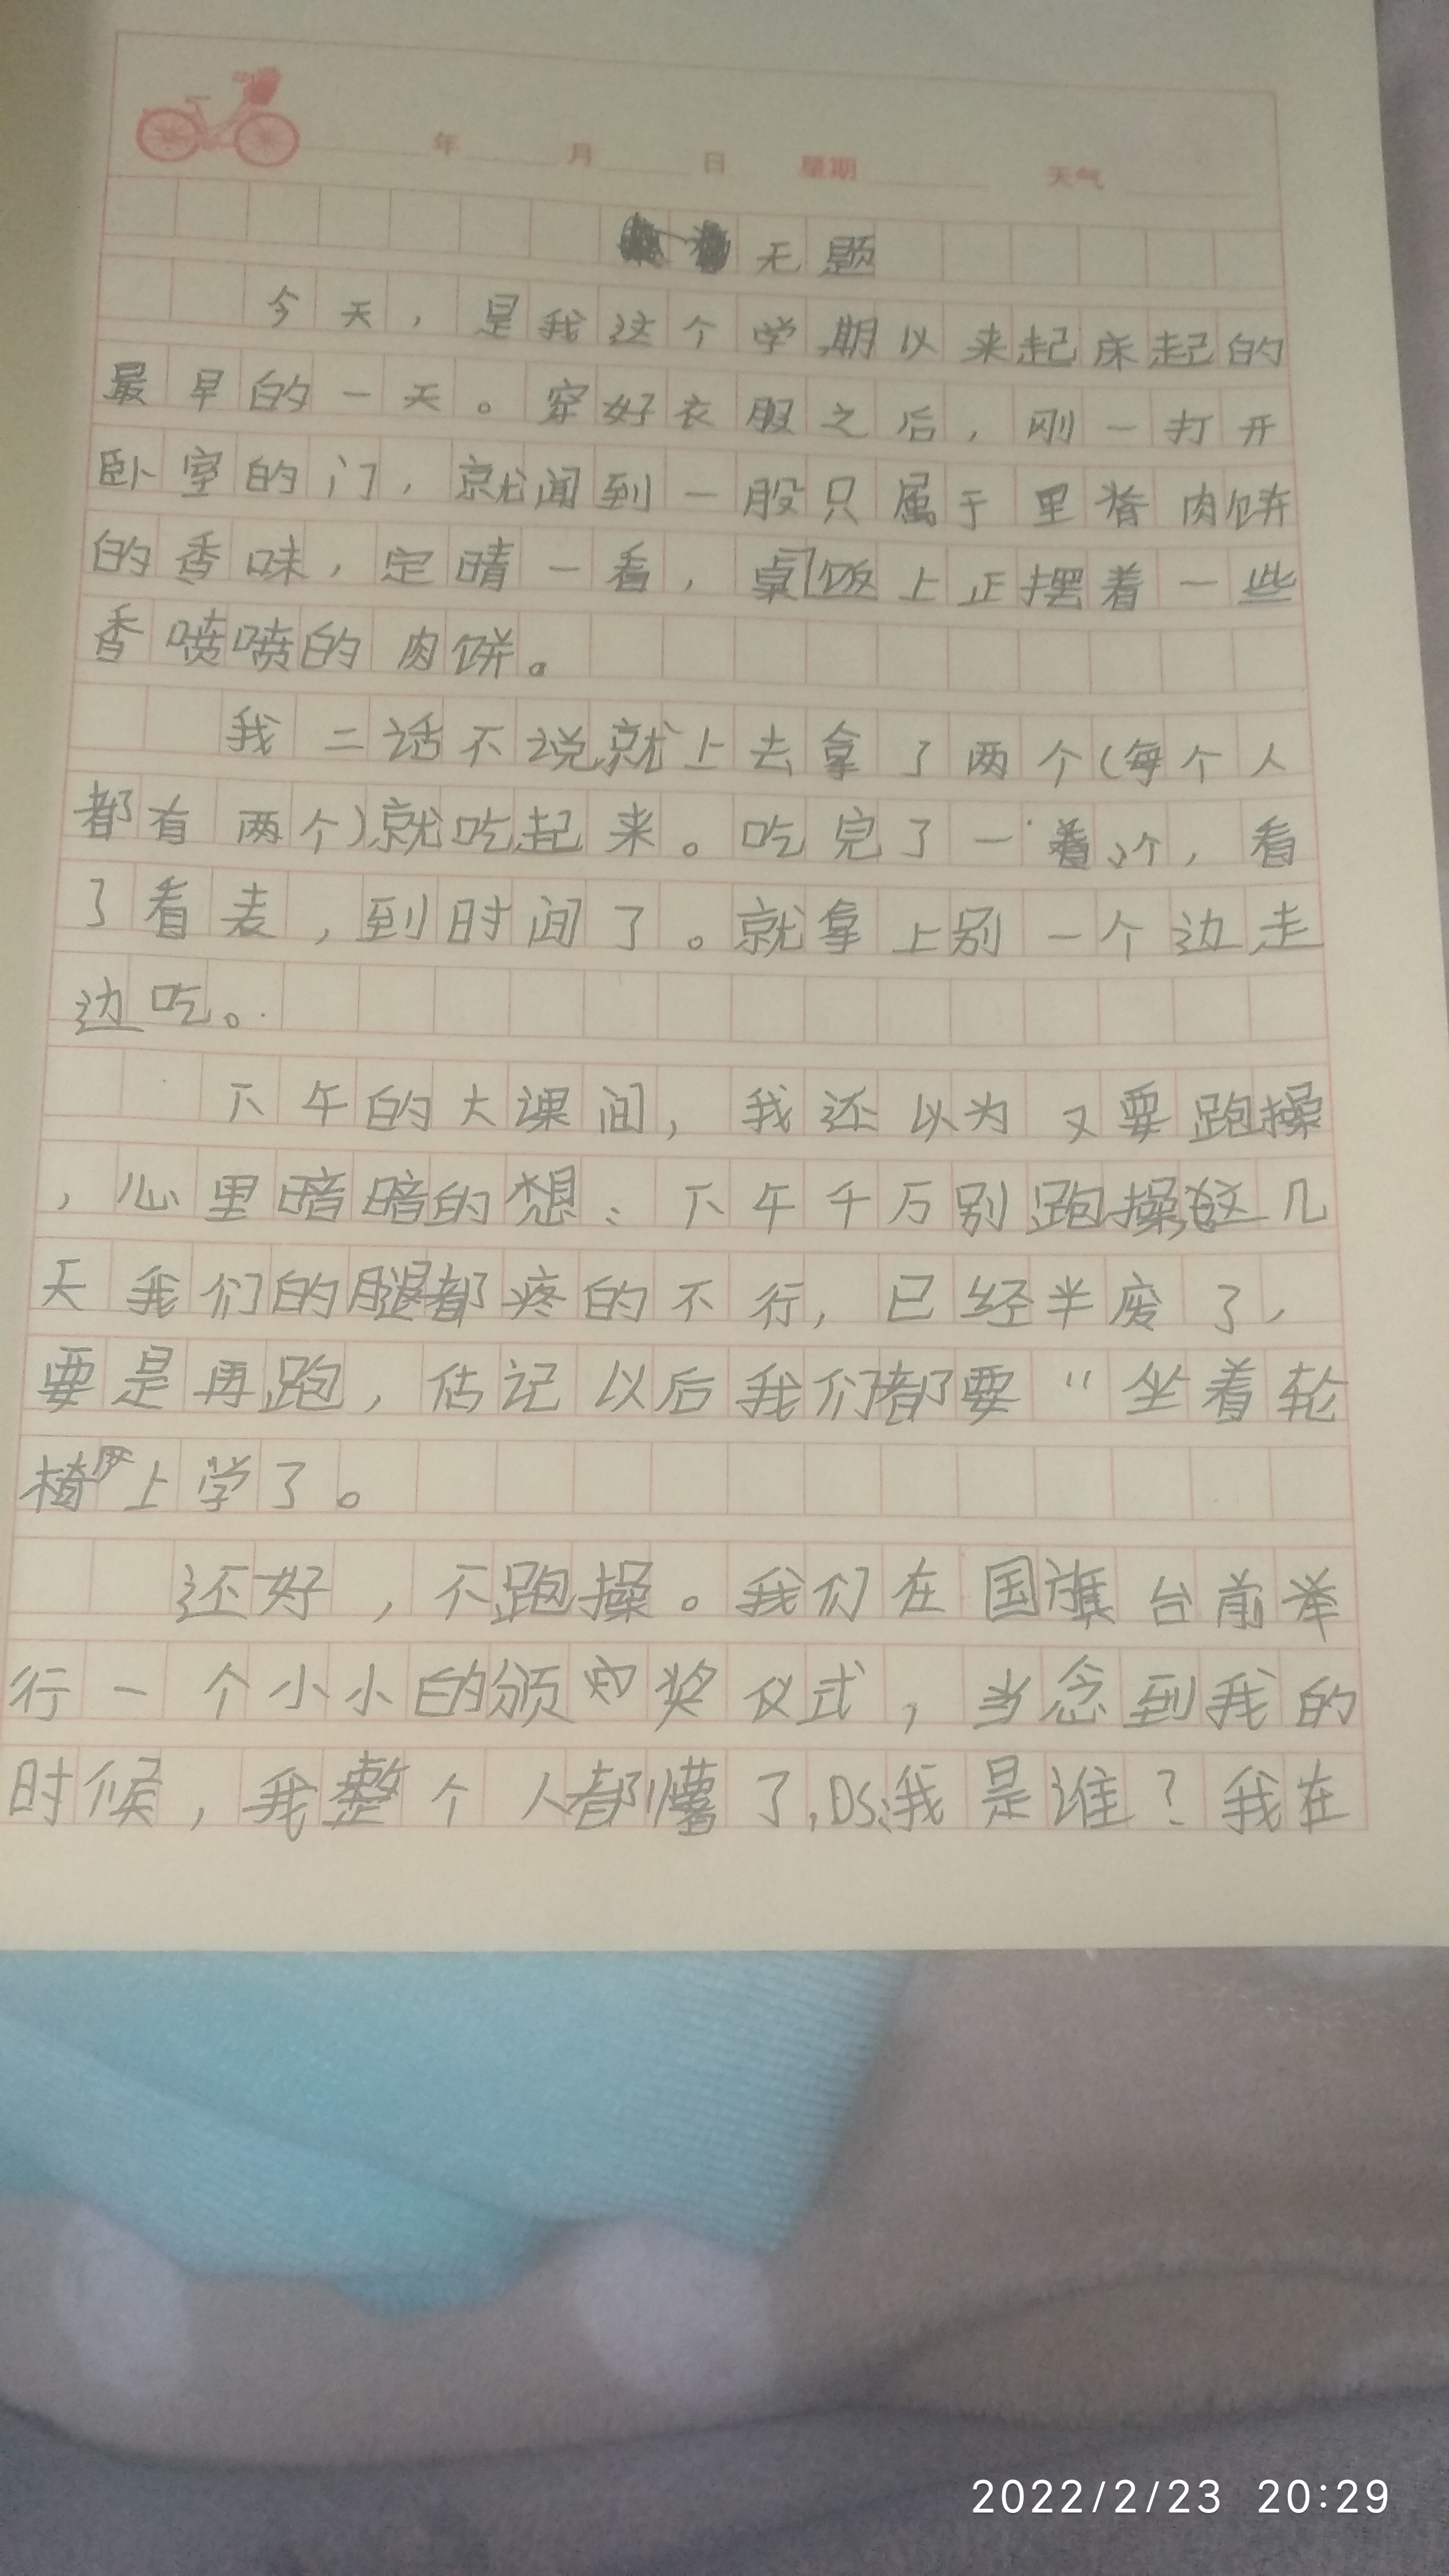 年 月 日 星期 天气
无题
今天，是我这个学期以来起床起的
最早的一天。穿好衣服之后，刚一打开
卧室的门，就闻到一股只属于里脊肉饼
的香味，定睛一看，桌饭上正摆着一些
香喷喷的肉饼。
我二话不说就上去拿了两个(每个人
都有两个)就吃起来。吃完了一个，看
了看表，到时间了。就拿上别一个边走
边吃。
下午的大课间，我还以为又要跑操
，心里暗暗的想：下午千万别跑操，这几
天我们的腿都疼的不行，已经半废了，
要是再跑，估记以后我们都要“坐着轮
椅”上学了。
还好，不跑操。我们在国旗台前举
行一个小小的颁奖仪式，当念到我的
时候，我整个人都懵了，OS:我是谁？我在
2022/2/23 20:29